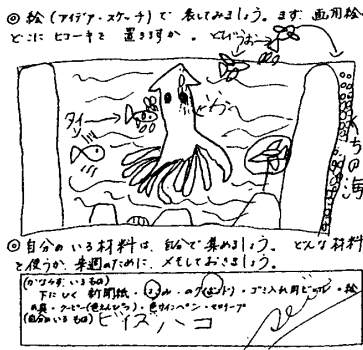 ◎絵(アイデア・スケッチ)で表してみましょう。まず画用紙の
どこにヒコーキを置きますか。とびうお
タイ
いちの海
◎自分のいる材料は、自分で集めましょう。どんな材料
を使うか、来週のために、メモしておきましょう。
(かならず いるもの)
下にひく新聞紙・はさみ・のり(ボンド)・ゴミ入れ用ビニール・絵
の具・クーピー(色えんぴつ)・色サインペン・セロテープ
(自分のいるもの)
ビーズ ハコ